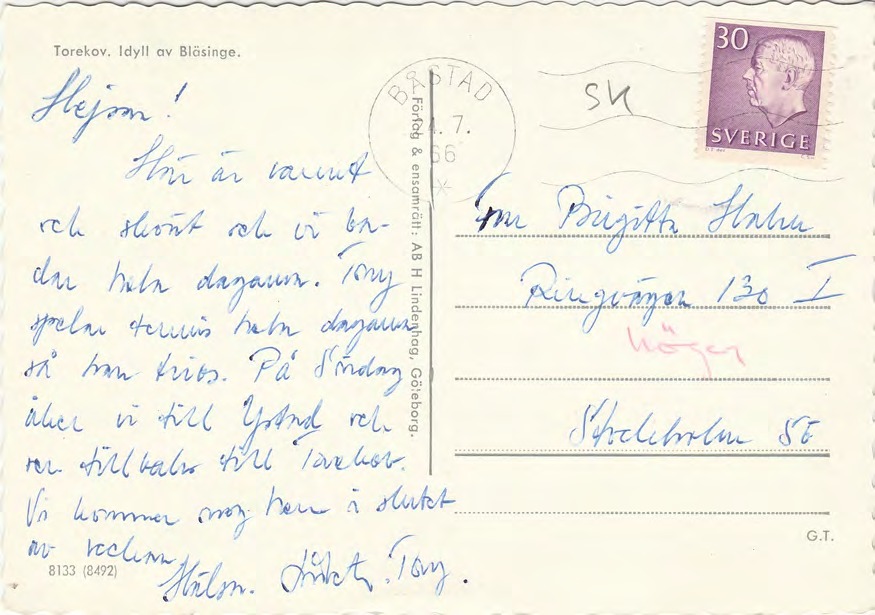 Torekov. Idyll av Bläsinge.
Hejsan!
Här är varmt
och skönt och vi ba-
dar hela dagarna. Tony
spelar tennis hela dagarna
så han trivs. På Söndag
åker vi till Ystad och
sen tillbaks till Torekov.
Vi kommer nog hem i slutet
av veckan.
Hälsn. Tony.
8133 (8492)
Förlag & ensamrätt: AB H Lindenhag, Göteborg.
BÅSTAD
7.
66
SK
30
SVERIGE
Birgitta Hahn
Ringvägen 130 I
höger
Stockholm SÖ
G.T.